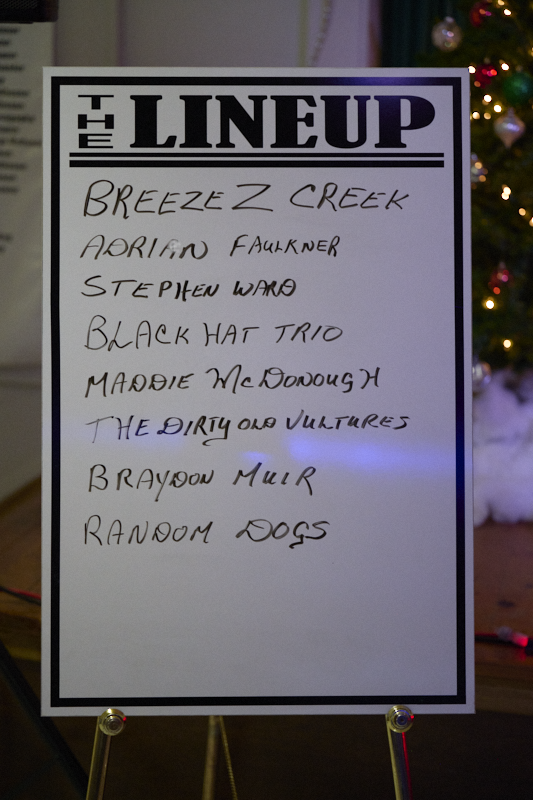 THE LINEUP
BREEZE Z CREEK
ADRIAN FAULKNER
STEPHEN WARD
BLACK HAT TRIO
MADDIE McDONOUGH
THE DIRTY OLD VULTURES
BRAYDON MUIR
RANDOM DOGS